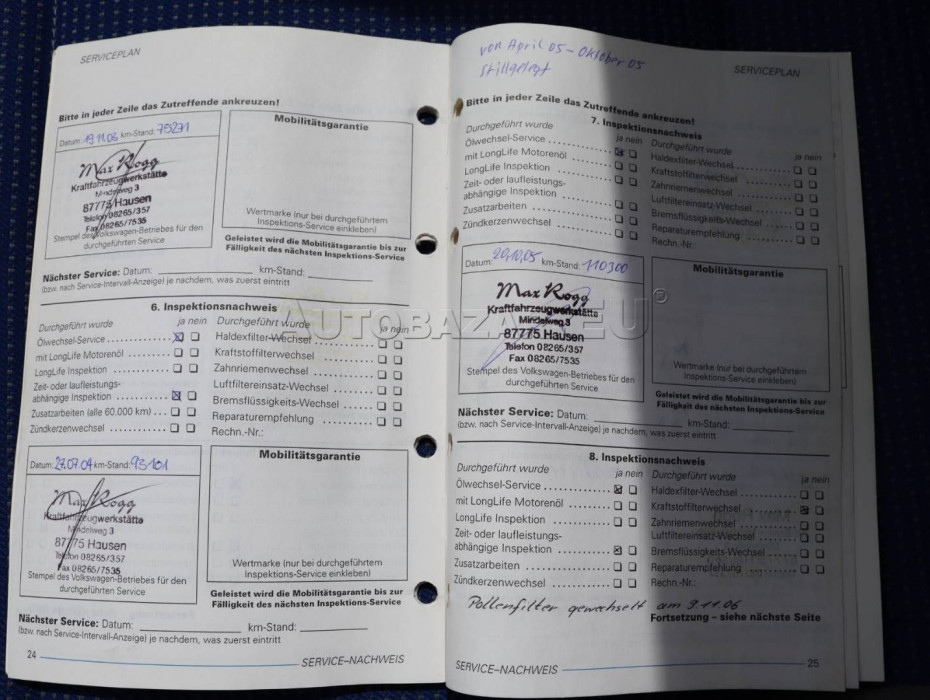 SERVICEPLAN
Bitte in jeder Zeile das Zutreffende ankreuzen!
Datum: 19.11.03 km-Stand: 75271
Max Rogg
Kraftfahrzeugwerkstätte
Mindelweg 3
87775 Hausen
Telefon 08265/357
Fax 08265/7535
Stempel des Volkswagen-Betriebes für den
durchgeführten Service
Mobilitätsgarantie
Wertmarke (nur bei durchgeführtem
Inspektions-Service einkleben)
Geleistet wird die Mobilitätsgarantie bis zur
Fälligkeit des nächsten Inspektions-Service
Nächster Service: Datum: km-Stand:
(bzw. nach Service-Intervall-Anzeige) je nachdem, was zuerst eintritt
6. Inspektionsnachweis
Durchgeführt wurde ja nein
Ölwechsel-Service
mit LongLife Motorenöl
LongLife Inspektion
Zeit- oder laufleistungs-
abhängige Inspektion
Zusatzarbeiten (alle 60.000 km)
Zündkerzenwechsel
Durchgeführt wurde ja nein
Haldexfilter-Wechsel
Kraftstoffilterwechsel
Zahnriemenwechsel
Luftfiltereinsatz-Wechsel
Bremsflüssigkeits-Wechsel
Reparaturempfehlung
Rechn.-Nr.:
Datum: 27.07.04 km-Stand: 93101
Max Rogg
Kraftfahrzeugwerkstätte
Mindelweg 3
87775 Hausen
Telefon 08265/357
Fax 08265/7535
Stempel des Volkswagen-Betriebes für den
durchgeführten Service
Mobilitätsgarantie
Wertmarke (nur bei durchgeführtem
Inspektions-Service einkleben)
Geleistet wird die Mobilitätsgarantie bis zur
Fälligkeit des nächsten Inspektions-Service
Nächster Service: Datum: km-Stand:
(bzw. nach Service-Intervall-Anzeige) je nachdem, was zuerst eintritt
24 SERVICE–NACHWEIS
von April 05 – Oktober 05
Stillgelegt
SERVICEPLAN
Bitte in jeder Zeile das Zutreffende ankreuzen!
7. Inspektionsnachweis
Durchgeführt wurde ja nein
Ölwechsel-Service
mit LongLife Motorenöl
LongLife Inspektion
Zeit- oder laufleistungs-
abhängige Inspektion
Zusatzarbeiten
Zündkerzenwechsel
Durchgeführt wurde ja nein
Haldexfilter-Wechsel
Kraftstoffilterwechsel
Zahnriemenwechsel
Luftfiltereinsatz-Wechsel
Bremsflüssigkeits-Wechsel
Reparaturempfehlung
Rechn.-Nr.:
Datum: 20.10.05 km-Stand: 110300
Max Rogg
Kraftfahrzeugwerkstätte
Mindelweg 3
87775 Hausen
Telefon 08265/357
Fax 08265/7535
Stempel des Volkswagen-Betriebes für den
durchgeführten Service
Mobilitätsgarantie
Wertmarke (nur bei durchgeführtem
Inspektions-Service einkleben)
Geleistet wird die Mobilitätsgarantie bis zur
Fälligkeit des nächsten Inspektions-Service
Nächster Service: Datum: km-Stand:
(bzw. nach Service-Intervall-Anzeige) je nachdem, was zuerst eintritt
8. Inspektionsnachweis
Durchgeführt wurde ja nein
Ölwechsel-Service
mit LongLife Motorenöl
LongLife Inspektion
Zeit- oder laufleistungs-
abhängige Inspektion
Zusatzarbeiten
Zündkerzenwechsel
Durchgeführt wurde ja nein
Haldexfilter-Wechsel
Kraftstoffilterwechsel
Zahnriemenwechsel
Luftfiltereinsatz-Wechsel
Bremsflüssigkeits-Wechsel
Reparaturempfehlung
Rechn.-Nr.:
Pollenfilter gewechselt am 9.11.06
Fortsetzung – siehe nächste Seite
SERVICE–NACHWEIS 25
AUTOBAZAR.EU